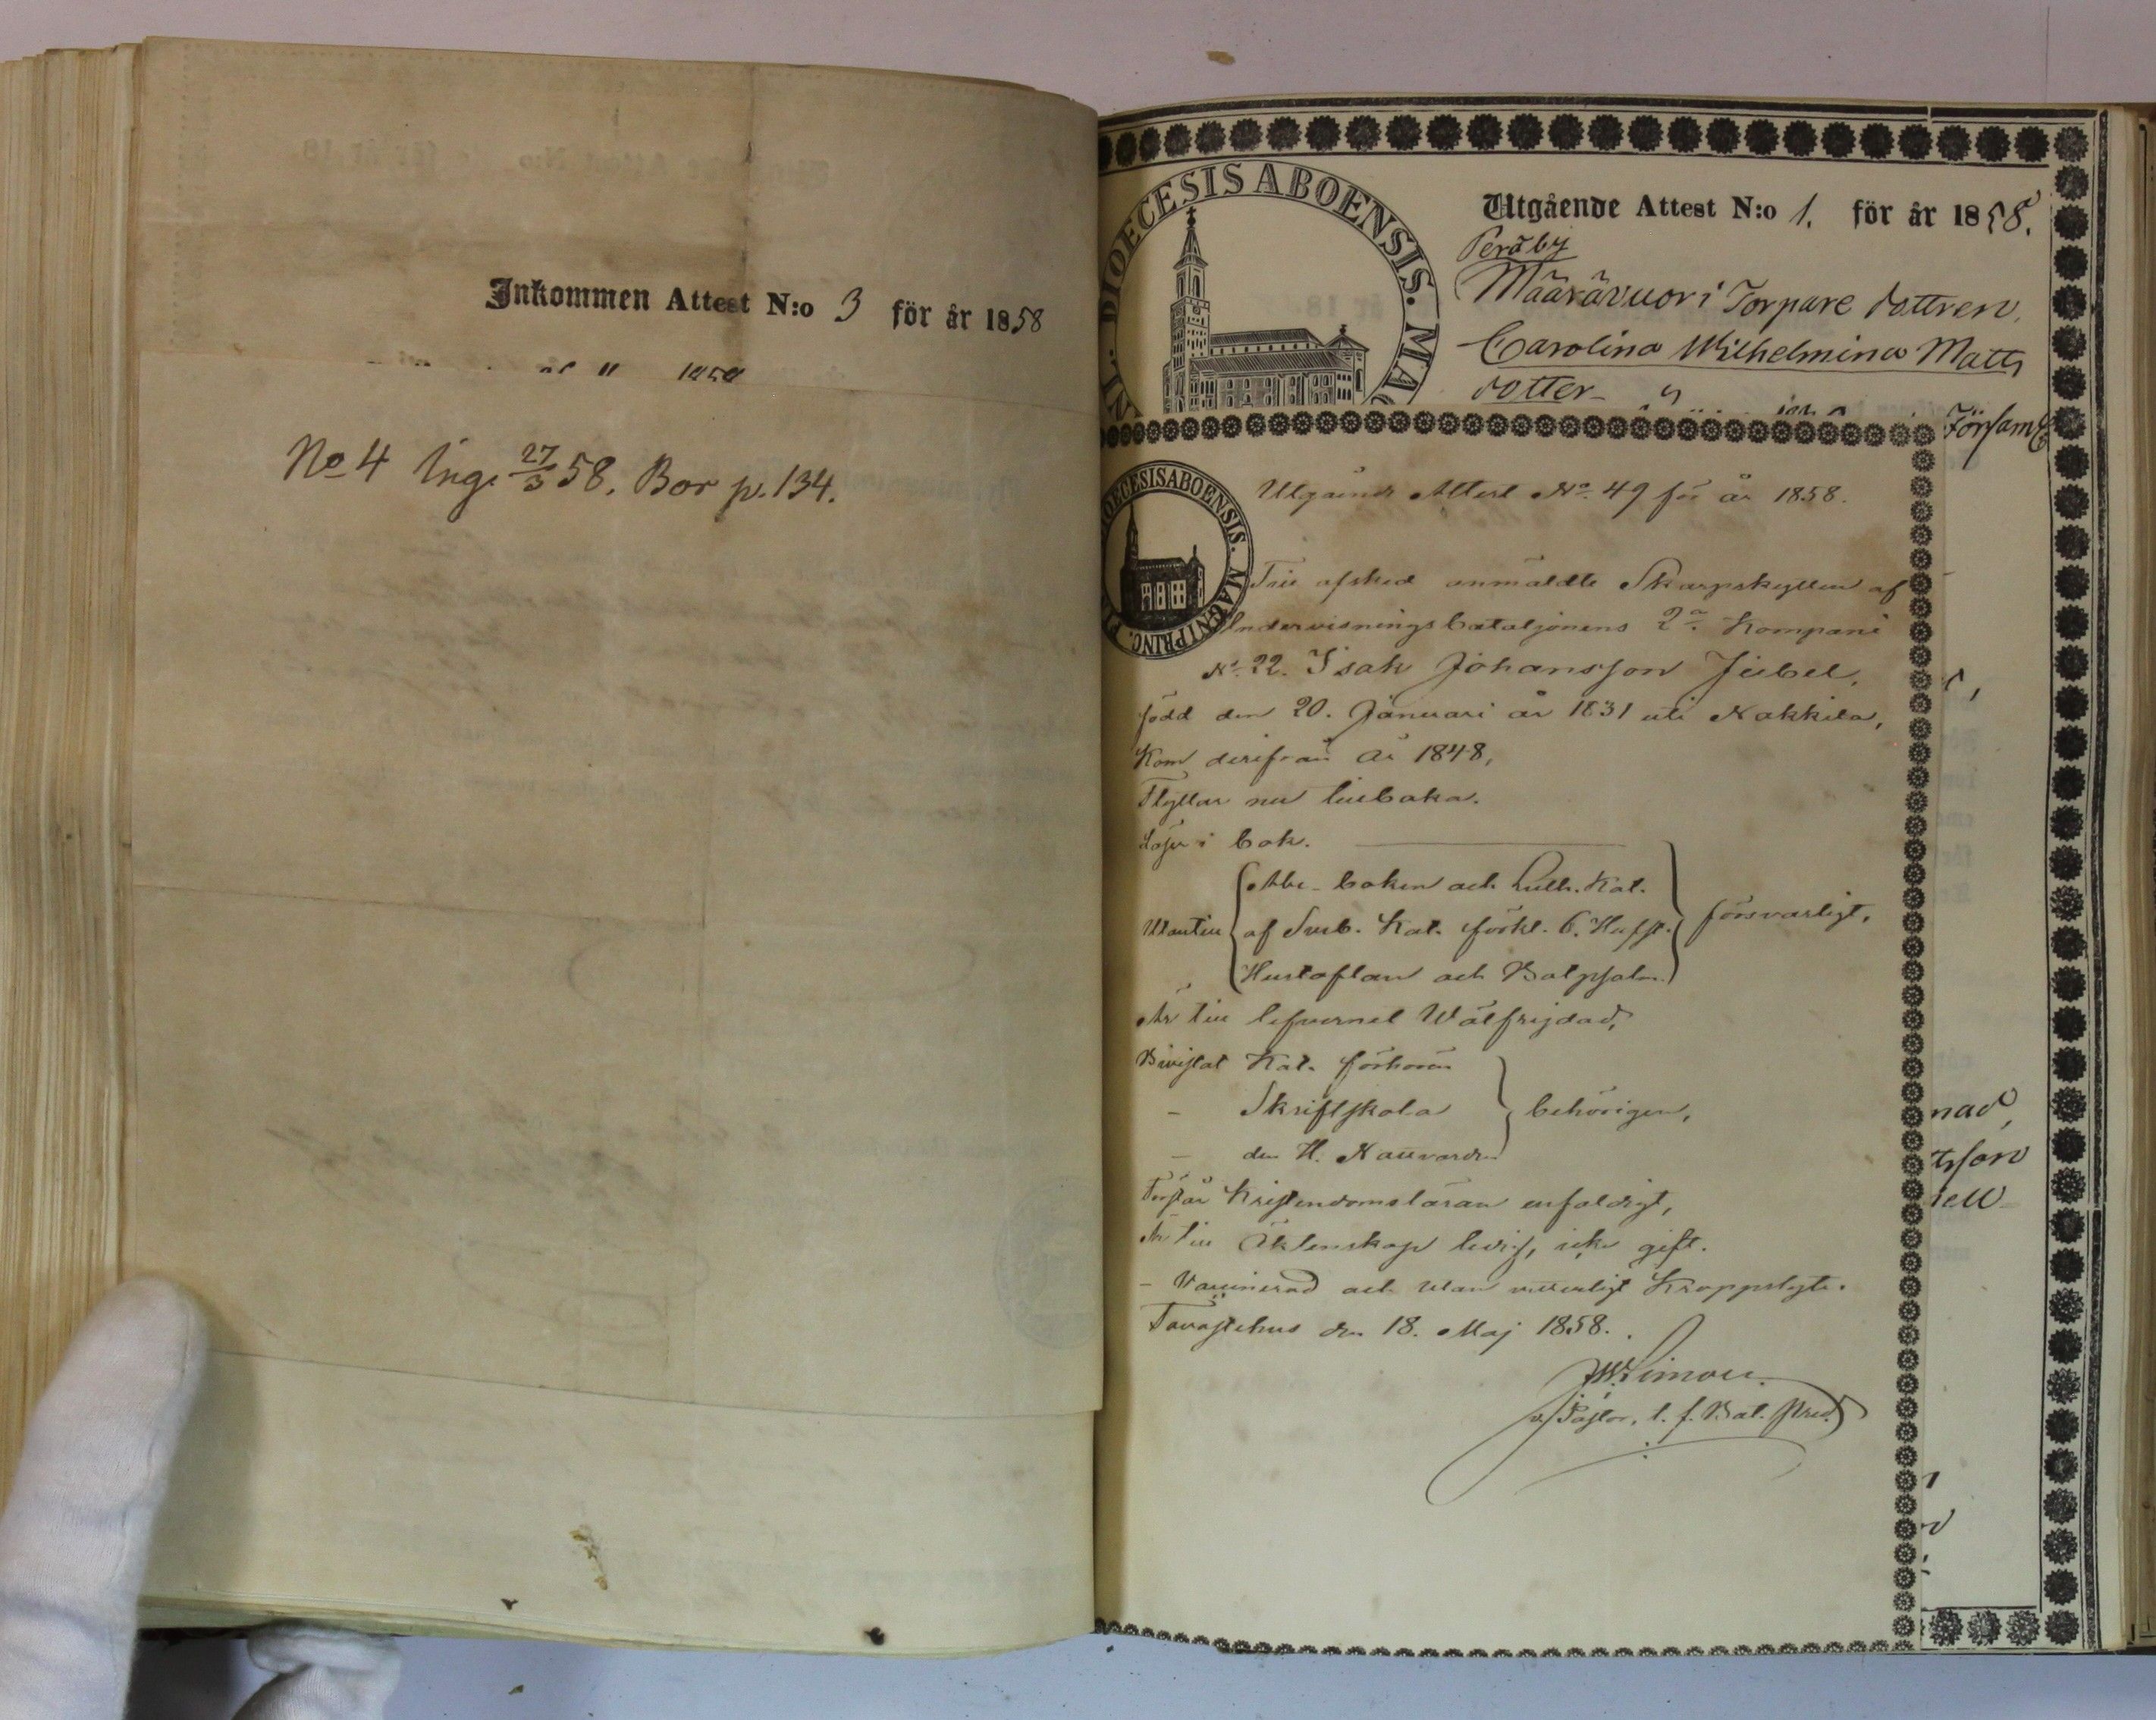 Inkommen Attest N:o 3 för år 1858
No 4 Ing. 27/3 58. Bor p. 134.
DIOECESIS ABOENSIS. MAG
Utgående Attest N:o 1. för år 1858.
Peräby
Määrävuori Torpare dottren,
Carolina Wilhelmina Matts
dotter
Församl
DIOECESIS ABOENSIS. MAGNI PRINC. FI
Utgående Attest No. 49 för år 1858.
Till afsked anmäldte Skarpskytten af
Undervisningsbataljonens 2a. Kompani
No. 22. Isak Johansson Jubel,
född den 20. Januari år 1831 uti Nakkila,
Kom derifrån år 1848,
Flyttar nu tillbaka.
Läser i bok.
Abc-boken och Luth. Kat.
Utantill af Sveb. Kat. förkl. 6. Hufst. försvarligt,
Hustaflan och Botpsalm.
Är till lefvernet Wälfrejdad,
Bivistat Kat. förhören
- Skriftskola behörigen,
- den H. Nattvarden
Förstår Kristendomsläran enfaldigt,
Är till Äktenskap ledig, icke gift.
- Vaccinerad och utan Kroppslyte.
Tavastehus den 18. Maj 1858.
v. Pastor, t. f. Bat. Pred.
nad,
tsson